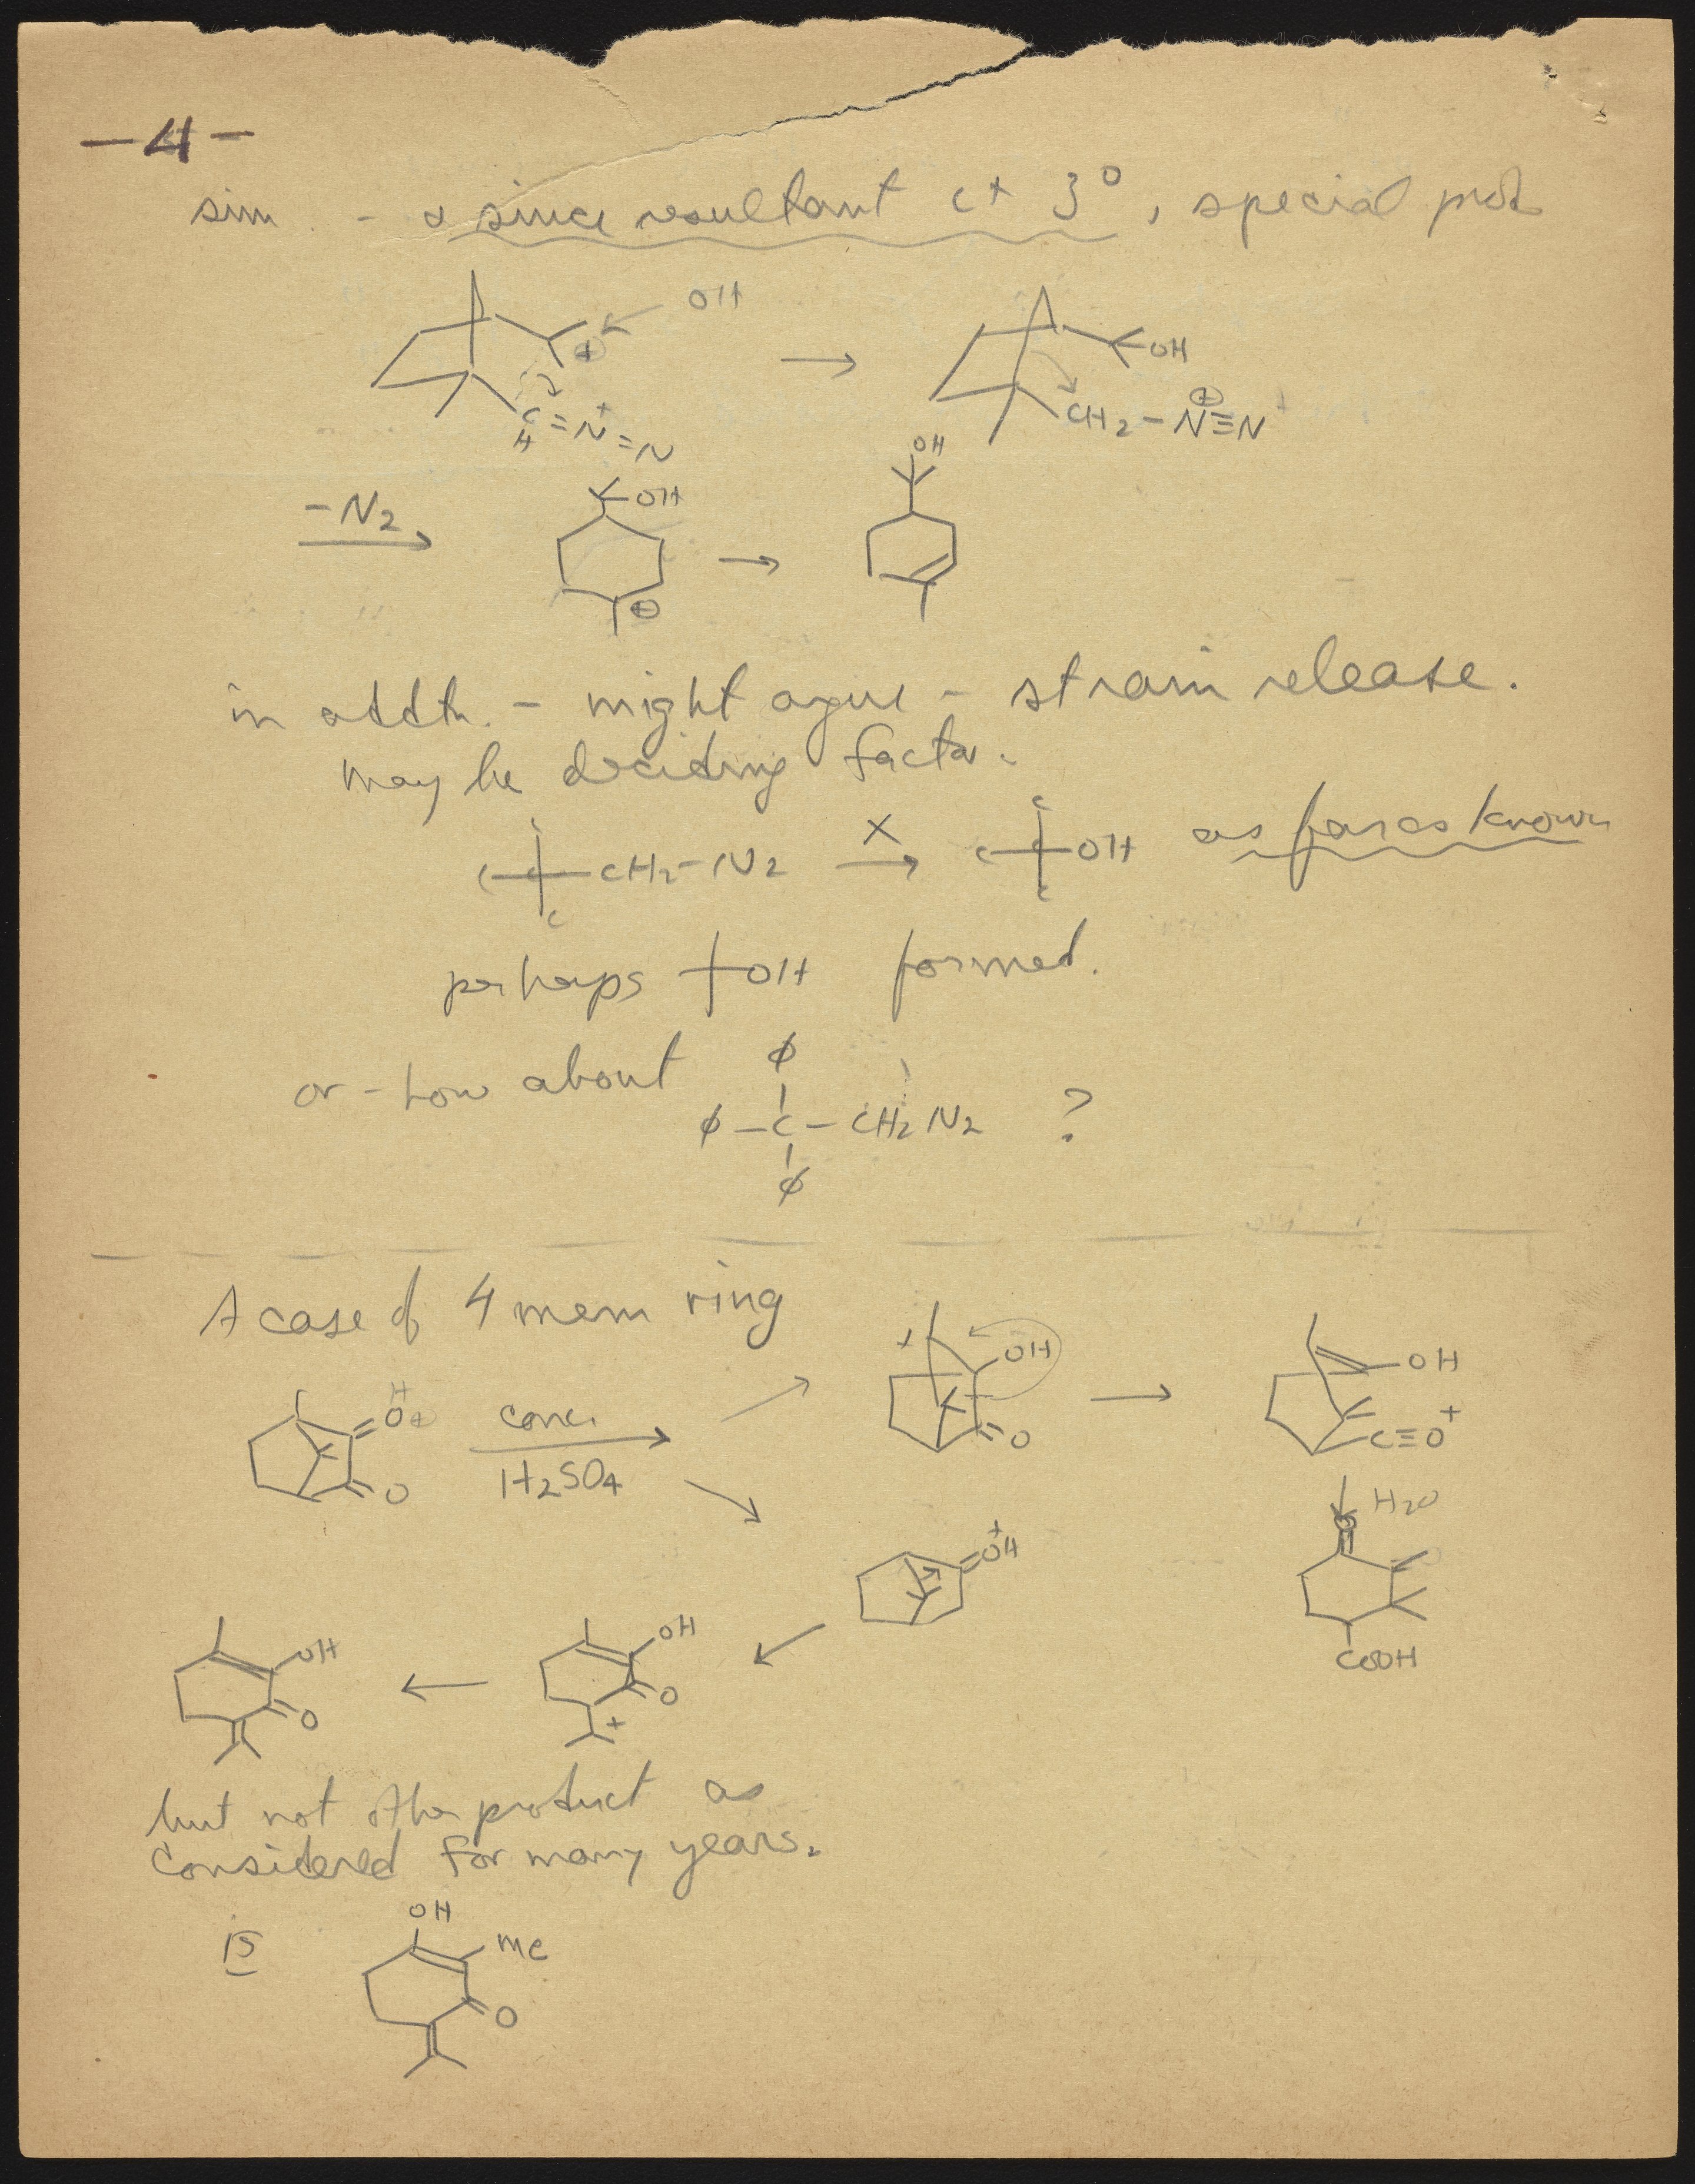 -4-
sim - & since resultant C+ 3°, special prod
OH
⊕
C=N+=N
H
→
OH
CH2-N⊕≡N
-N2
OH
⊕
→
OH
in addtn. - might argue - strain release.
may be deciding factor.
C C C C -CH2-N2 X → C C C C -OH as far as known
perhaps +OH formed.
or - how about
ϕ
ϕ-C-CH2N2 ?
ϕ
A case of 4 mem ring
H
O+
O
conc.
H2SO4
+
OH
O
→
OH
C≡O+
H2O
O
COOH
+
OH
OH
O
+
←
OH
O
but not other product as
considered for many years.
is
OH
Me
O